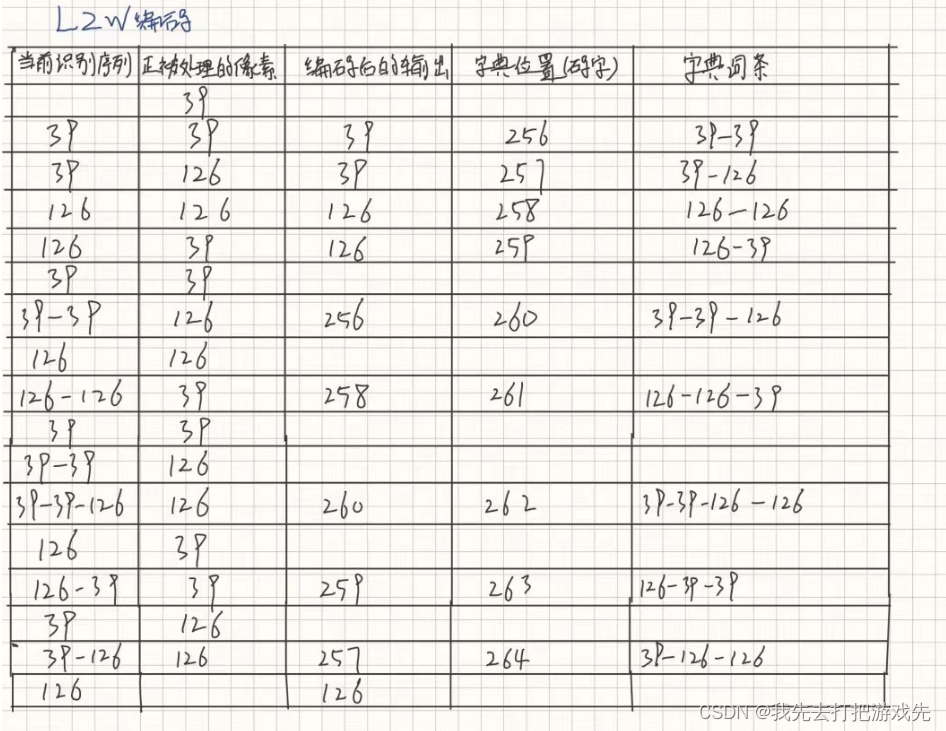 LZW编码
当前识别序列 正被处理的像素 编码后的输出 字典位置(码字) 字典词条
39
39 39 39 256 39-39
39 126 39 257 39-126
126 126 126 258 126-126
126 39 126 259 126-39
39 39
39-39 126 256 260 39-39-126
126 126
126-126 39 258 261 126-126-39
39 39
39-39 126
39-39-126 126 260 262 39-39-126-126
126 39
126-39 39 259 263 126-39-39
39 126
39-126 126 257 264 39-126-126
126 126
CSDN @我先去打把游戏先